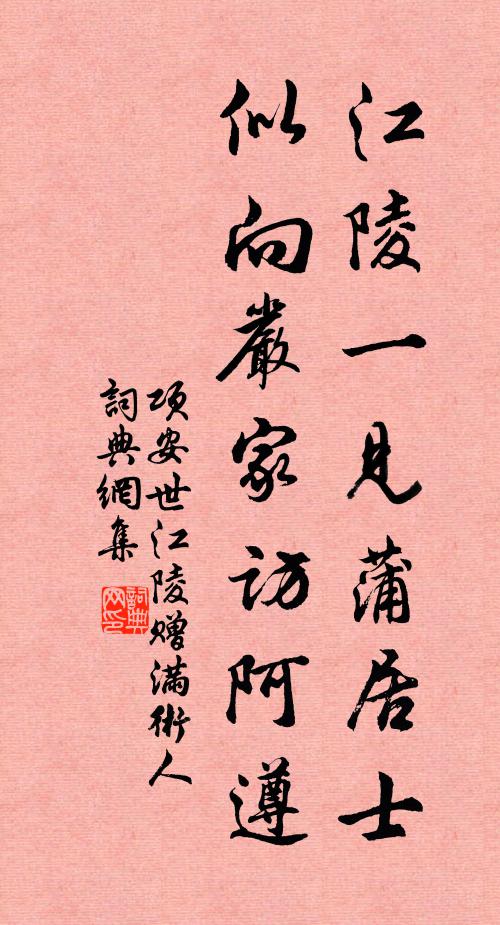 江陵一見蒲居士
似向嚴家訪阿遵
項安世江陵贈滿術人
詞典網集
詞典網印